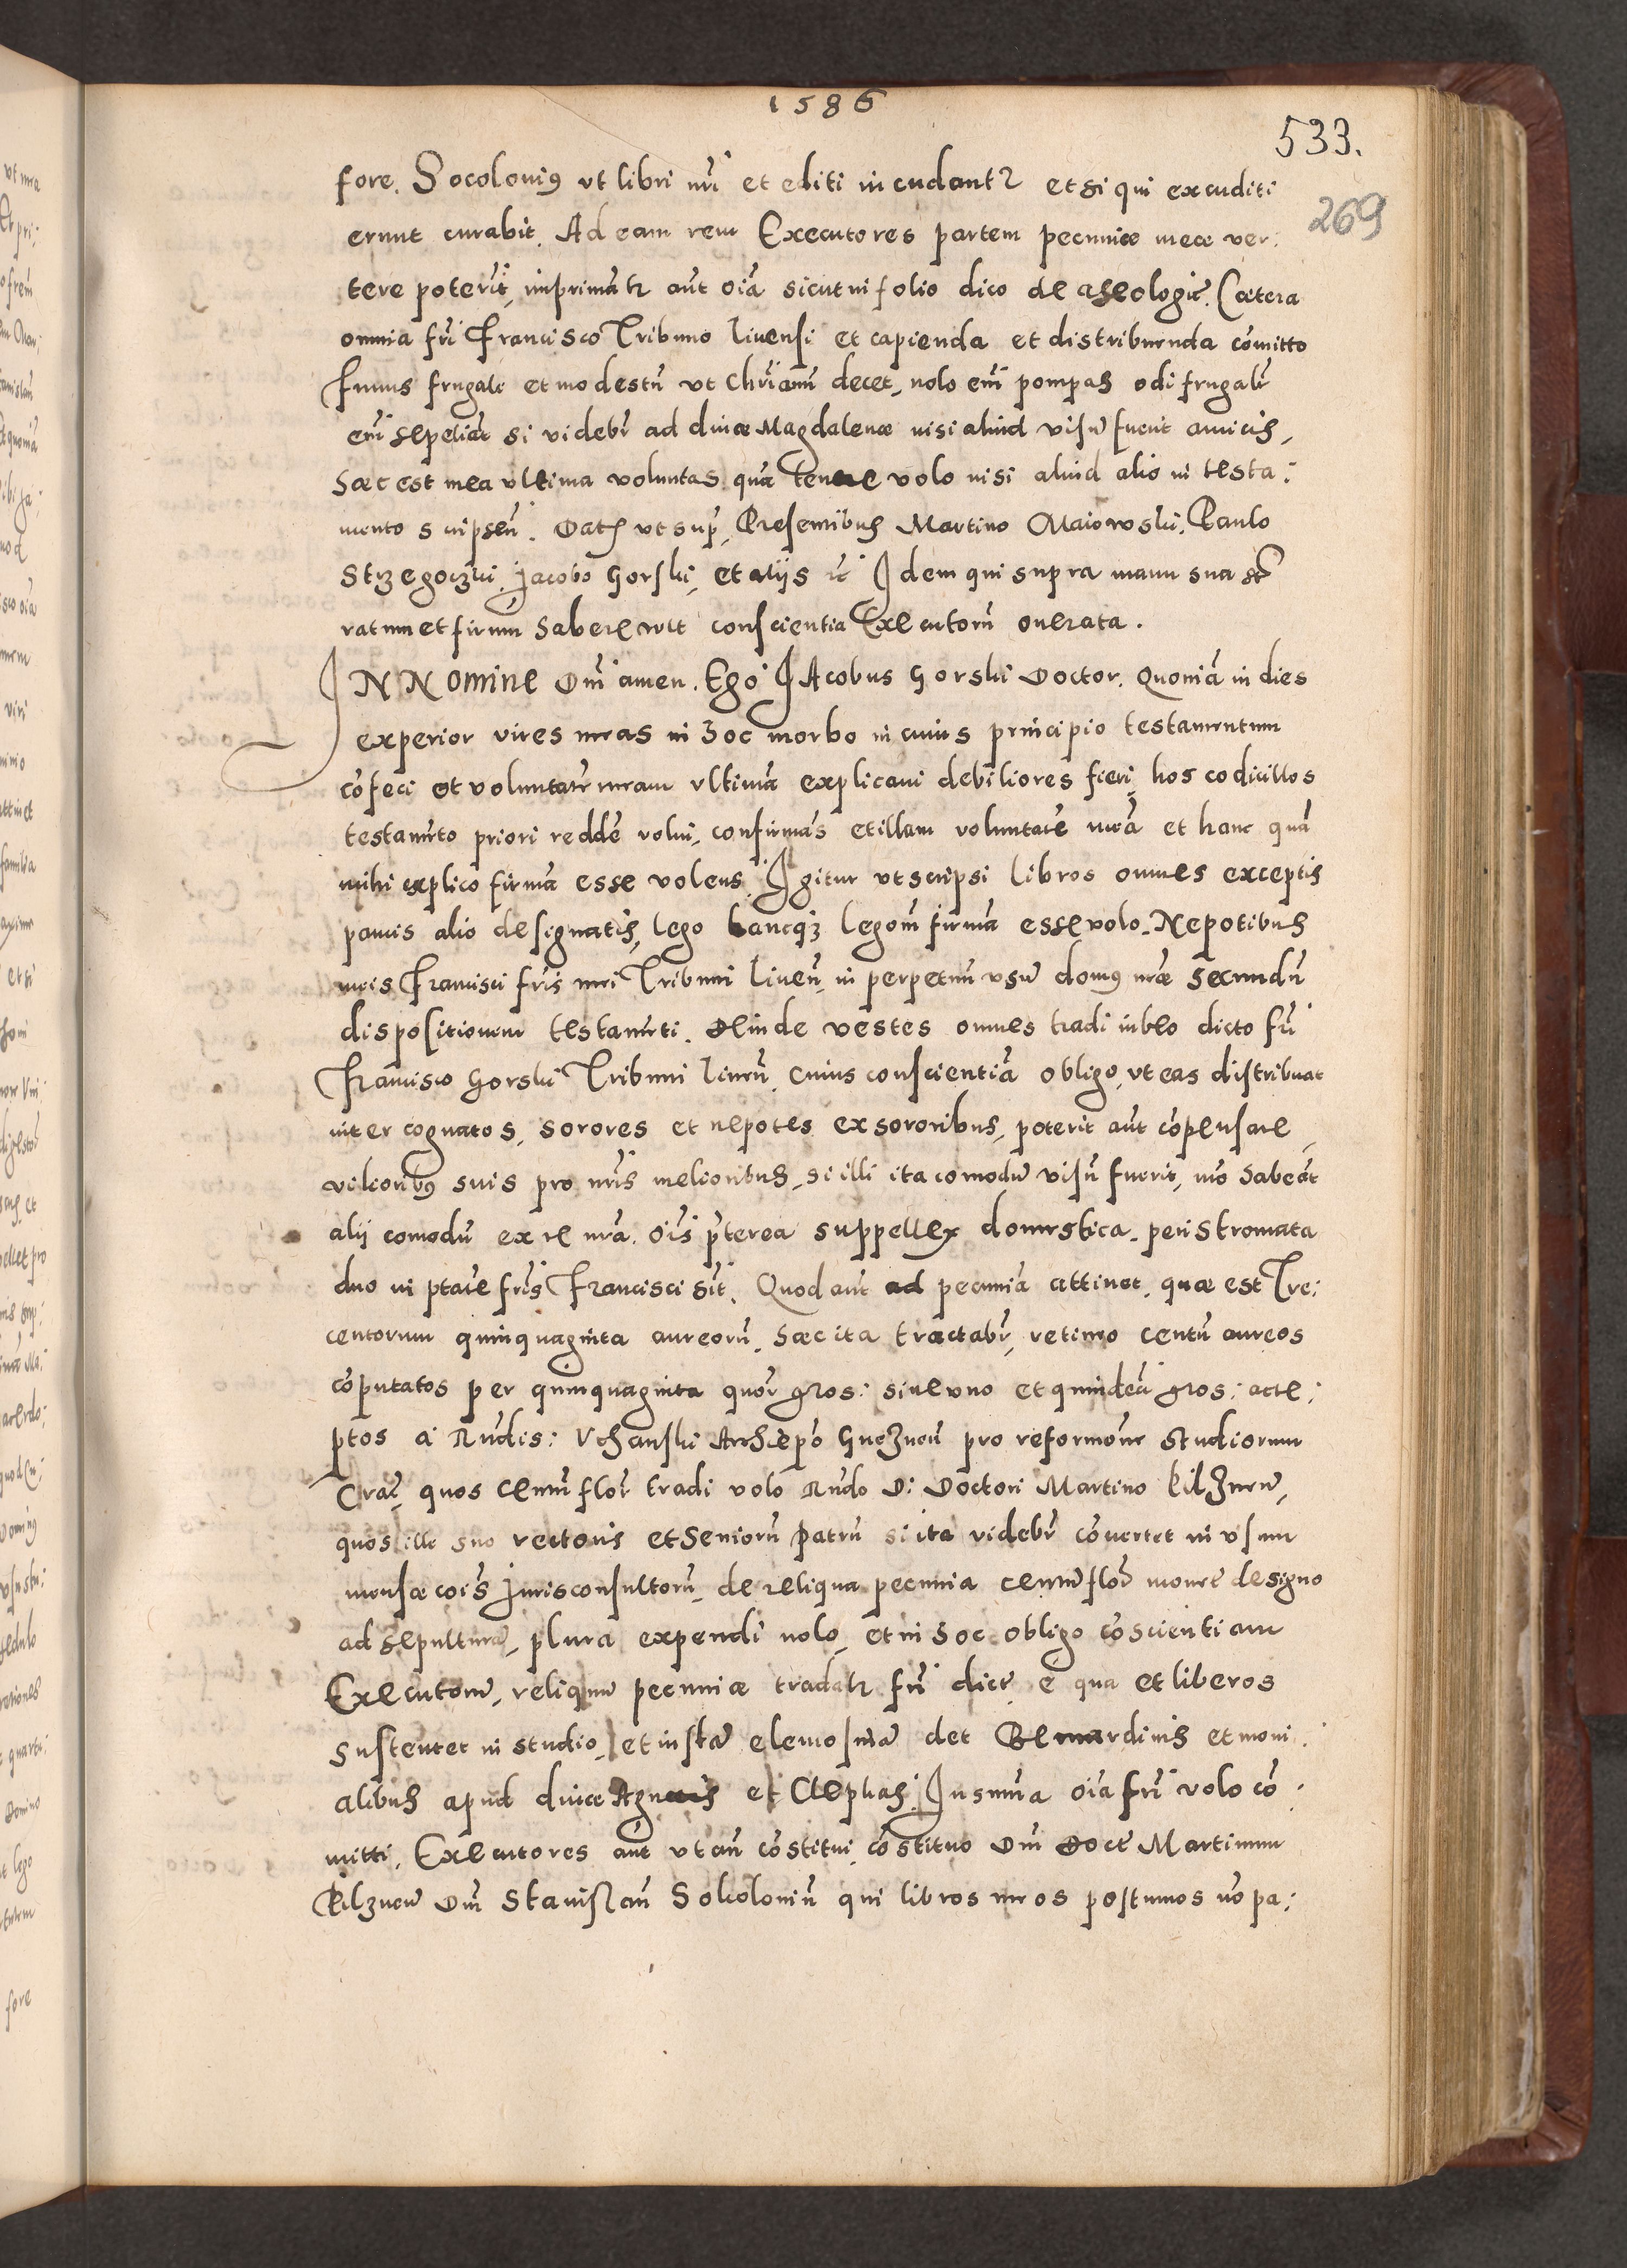 1586
533.
269
fore. Socolouiꝯ vt libri mĩ et editi incudantꝛ et si qui excuditi
erunt curabit. Ad eam rem Executores partem pecuniæ meæ ver:
tere poterũt, imprimãtꝛ aũt oĩa sicut in folio dico de theologic̃. Cœtera
omnia fri Francisco Tribuno liuensi et capienda et distribuenda cõmitto
funus frugale et modestũ vt Chrĩanũ decet, nolo em̃ pompas odi frugalr̃
em̃ sepeliar si videbr̃ ad diuæ Magdalenæ nisi aliud visũ fuerit amicis,
hæc est mea vltima voluntas quã tenere volo nisi aliud alio in testa:
mento scripserĩ. Datẽ vt supr̃, Presentibus Martino Maiowski, Paulo
Strzegoczki, Jacobo Gorski, et alijs ꝛc̃ Idem qui supra manu sua
ratum et firmu habere vult conscientia Executorũ onerata.
IN Nomine Dm̃i amen. Ego JAcobus Gorski Doctor. Quoniã in dies
experior vires meas in hoc morbo in cuius principio testamentum
cõfeci et voluntatẽ meam vltimã explicaui debiliores fieri, hos codicillos
testamẽto priori reddẽ volui, confirmãs et illam voluntatẽ meã et hanc quã
mihi explico firmã esse volens. Igitur vt scripsi libros omnes exceptis
paucis alio designatis, lego hancqꝫ legoñ firmã esse volo. Nepotibus
meis Francisci fris mei Tribuni liueñ, in perpetuũ vsũ domꝯ meæ secundũ
dispositionem testamẽti. Deinde vestes omnes tradi iubeo dicto fri
Francisco Gorski Tribuni liueñ, cuius conscientiã obligo, vt eas distribuat
inter cognatos, sorores et nepotes ex sororibus, poterit aũt cõpensare
vilioribꝯ suis pro meis melioribus, si illi ita comodũ visũ fuerit, mõ habeãt
alij comodũ ex re mea. oĩs p̃terea suppellex domestica, peristromata
duo in p̃tate fris Francisci sũt. Quod aũt ad pecuniã attinet, quæ est Tre:
centorum quinquaginta aureorũ, hæc ita tractabr̃, retineo centũ aureos
cõputatos per quinquaginta quor̃ gros: siue vno et quindecĩ gros: acce:
ptos a Rũdis: Vchanski Archiepõ Gnezneñ pro reformõne studiorum
Crac̃, quos centũ flor̃ tradi volo Rũdo D: Doctori Martino Pilzneñ,
quos ille suo rectoris et seniorũ patrũ si ita videbr̃ cõuertet in vsum
mensæ cõis Jurisconsultorũ, de reliqua pecunia centũ flor̃ monetẽ designo
ad sepulturã, plura expendi nolo, et in hoc obligo cõscientiam
Executorũ, reliquũ pecuniæ tradatꝛ fri dictẽ, e qua et liberos
sustentet in studio, et iustã elemosinã det Bernardinis et moni:
alibus apud diuæ Agnetis et Clephas. In summa oĩa fri volo cõ:
mitti, Executores aũt vt añ cõstitui, cõstituo Dm̃ Doctr̃ Martinum
Pilzneñ Dm̃ Stanislaũ Sokolouiũ qui libros meos postumos nõ pa: